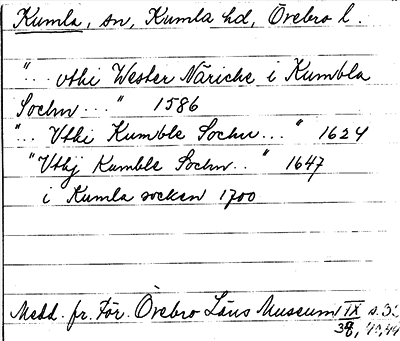 Kumla, sn, Kumla hd, Örebro l.
"... vthi Wester Näricke i Kumbla
Sochn ..." 1586
"... Vthi Kumble Sochn ..." 1624
"Vthj Kumble Sochn .." 1647
i Kumla socken 1700
Medd. fr. För. Örebro Läns Museum IX s. 32
38, 40, 44